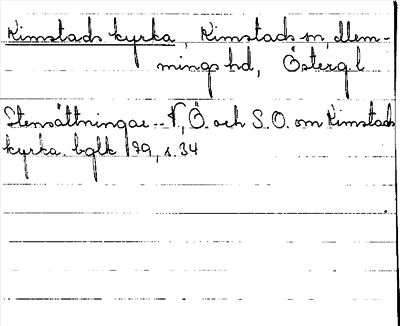 Kimstads kyrka, Kimstads sn, Mem-
mings hd, Östergl
Stensättningar -- N, Ö. och S.O. om Kimstads
kyrka. bglk 179, s. 34